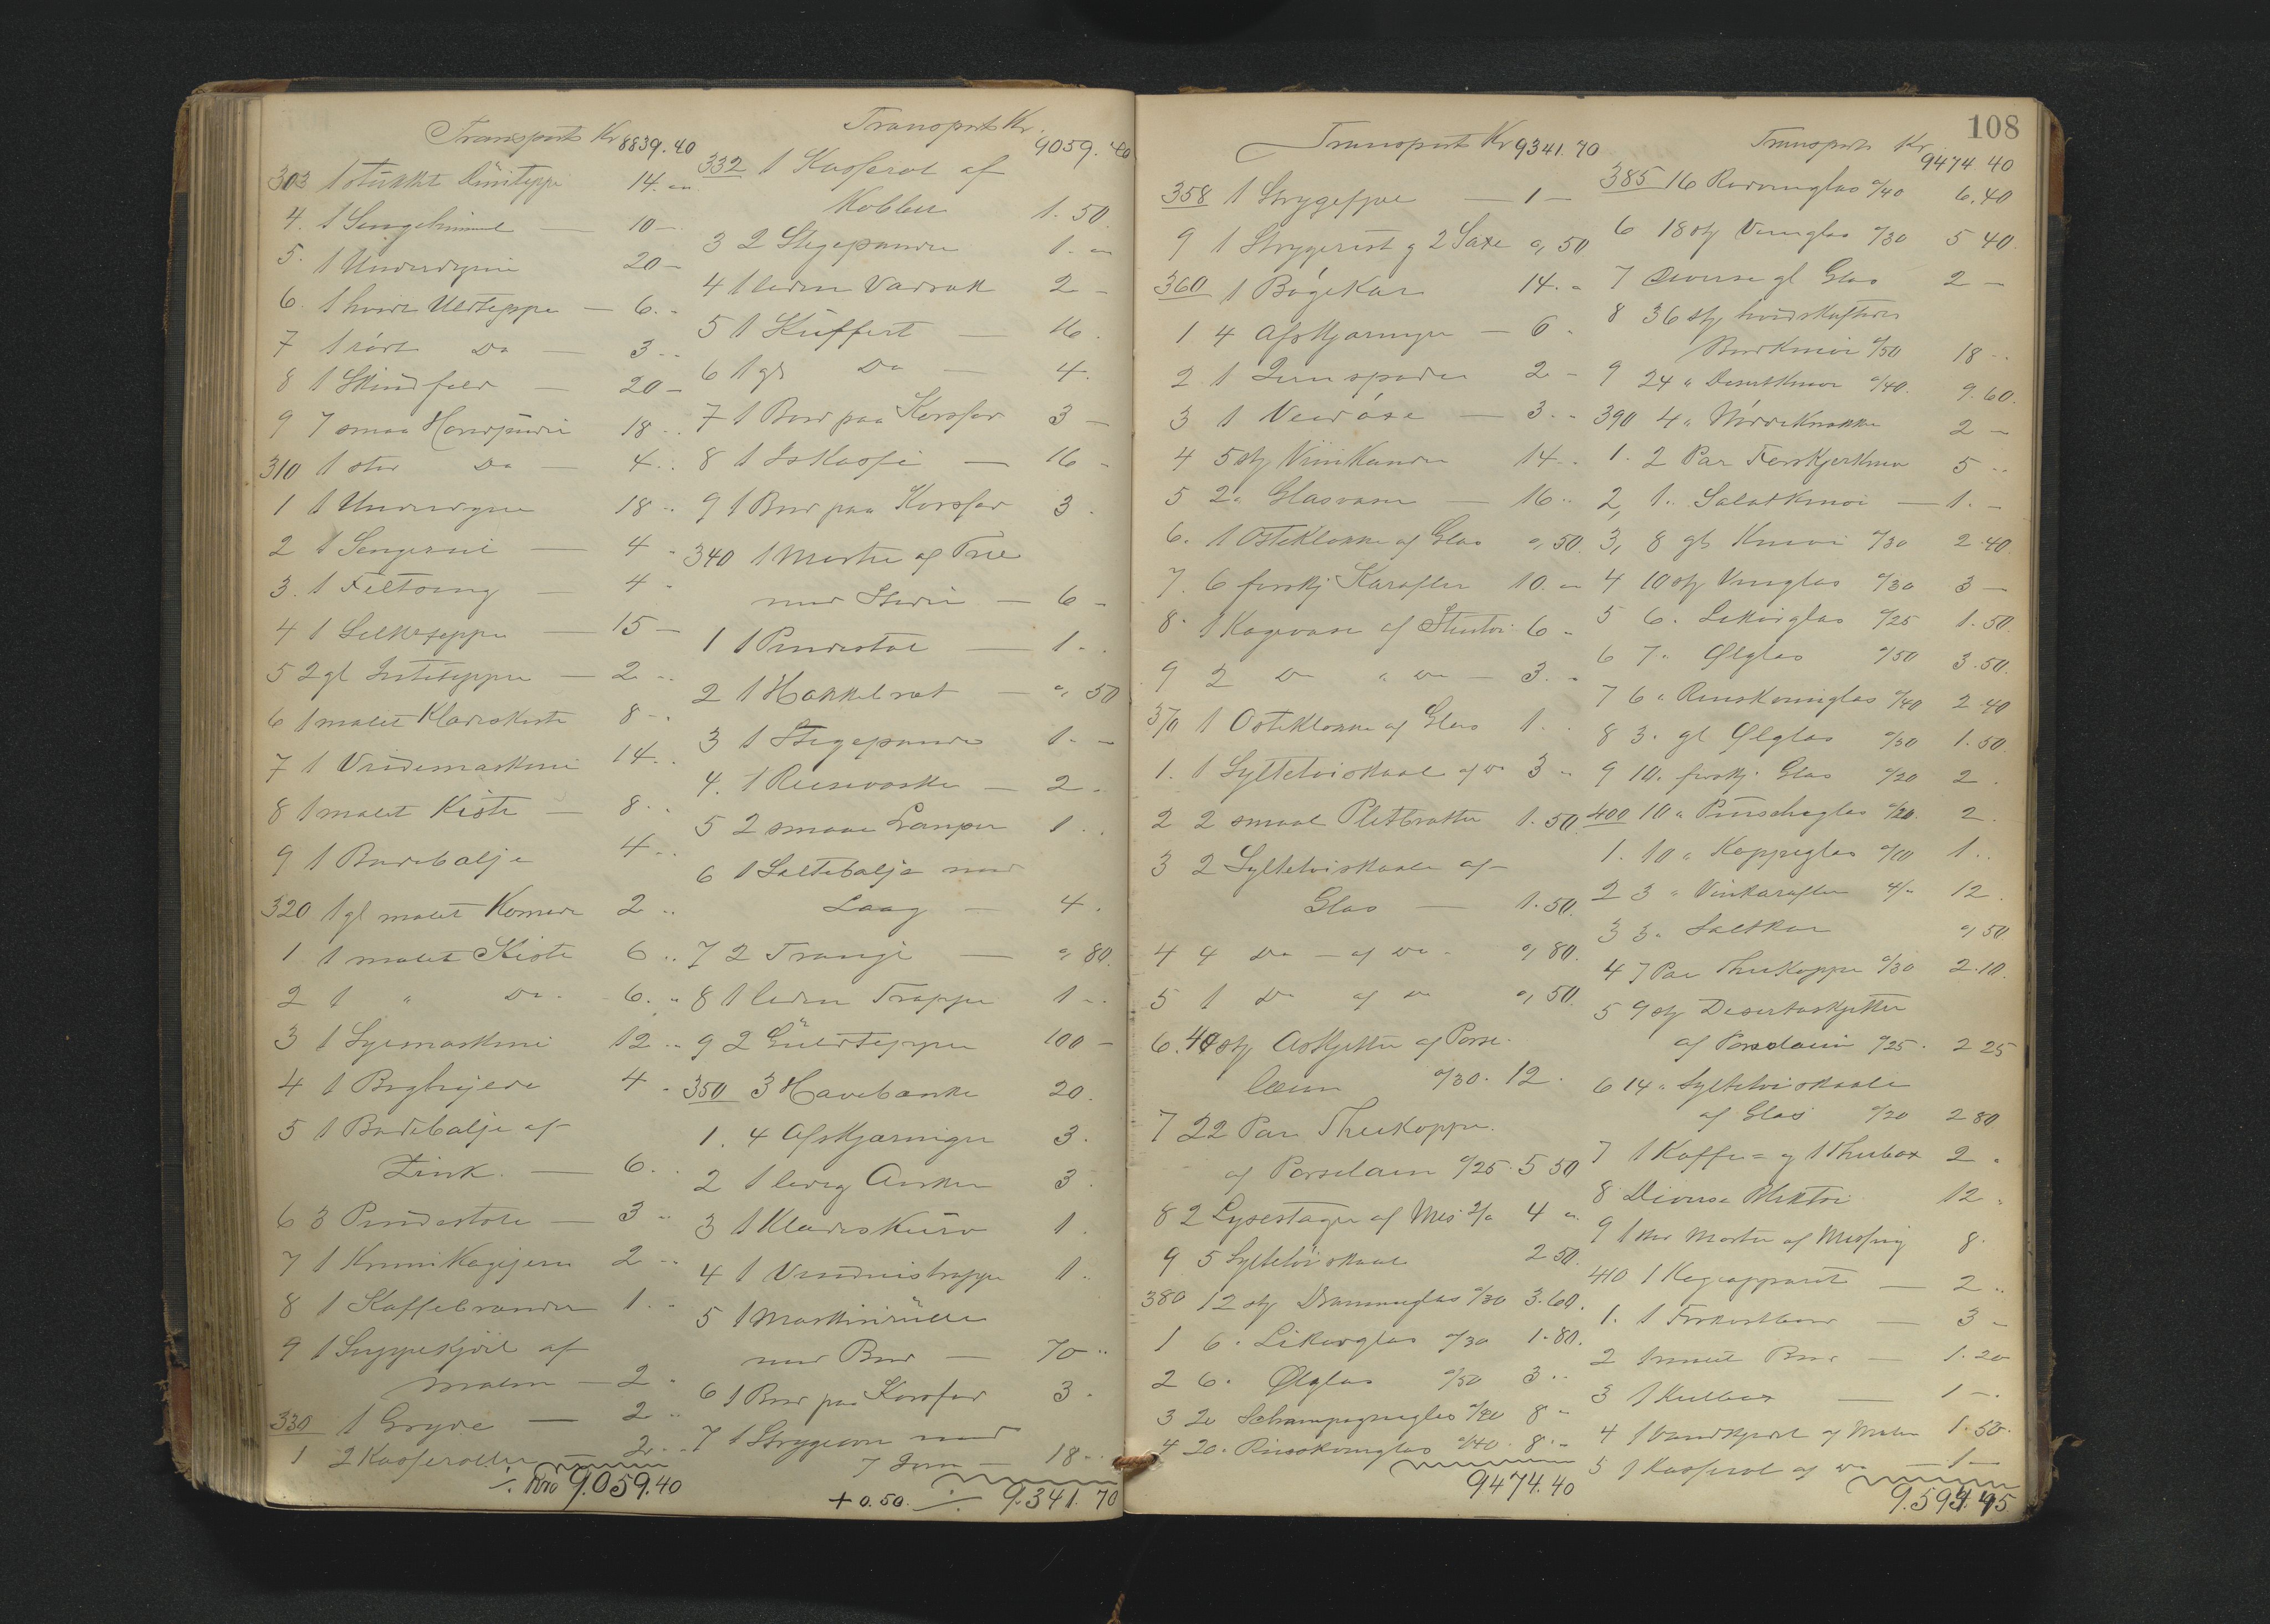 Transport Kr 8839.40
303 1 stukket Duunteppe 14. "
4. 1 Sengehimmel — 10 —
5. 1 Underdyne 20 —
6. 1 hvidt Uldteppe — 6. "
7 1 rødt Do — 3 "
8 1 Skindfeld — 20 —
9 7 smaa Hovedpuder 18 "
310 1 stor Do — 4 "
1 1 Underdyne 18 "
2 1 Sengetæppe — 4 "
3. 1 Feltseng — 4 "
4 1 Silketeppe — 15 —
5 2 gl Juteteppe — 2 "
6 1 malet Klædeskiste 8 "
7 1 Vridemaskine 14 "
8 1 malet Kiste — 8 "
9 1 Badebalje 4 "
320 1 gl malet Komode 2 "
1 1 malet Kiste 6 "
2 1 " Do — 6. "
3 1 Symaskine 12 "
4 1 Boghylde 4 "
5 1 Badebalje af
Zink — 6 "
6 3 Pindestole — 3 "
7 1 Krumkagejern 2 "
8 1 Kaffebrander 1 "
9 1 Suppekjedel af
Malm — 2 "
330 1 Gryde — 2 "
1 2 Kasseroller — 2 "
./. Kro 9.059.40
Transport Kr.
9059.40
332 1 Kasserol af
Kobber 1.50
3 2 Stegepander 1. "
4 1 liden Vadsæk 2 —
5 1 Kuffert — 16
6 1 gl Do — 4.
7 1 Bord paa Korsfod 3 —
8 1 Iskasse — 16 —
9 1 Bord paa Korsfod 3 "
340 1 Morter af Træ
med Støder — 6 —
1 1 Pindestol — 1 "
2 1 Hakkebræt — ", 50
3 1 Stegepande 1. —
4. 1 Reiseveske — 2 "
5 2 smaa Lamper 1 "
6 1 Saltebalje med
Laag — 4.
7 2 Traug — ", 80
8 1 liden Trappe 1 "
9 2 Gulvtepper 100 —
350 3 Havebænke 20.
1. 4 Afskjæringer 3.
2 1 ledig Anker 3.
3 1 Klædeskurv 1.
4 1 Vinduestrappe 1 "
5 1 Maskinrulle
med Bord — 70 "
6 1 Bord paa Korsfod 3 "
7 1 Strygeovn med
7 Jern — 18 "
+ 0.50. ./. 9.341.70
108
Transport Kr 9341.70
358 1 Strygefjæl — 1 —
9 1 Strygerist og 2 Saxe ", 50
360 1 Bøgekar 14. "
1. 4 Afskjæringer — 6 "
2 1 Jernspader 2 —
3 1 Vedøxe — 3 "
4 5 stk Vinkander 14 "
5 2 " Glasvaser — 16 "
6. 1 Osteklokke af Glas ", 50
7. 6 forskj Karafler 10. "
8. 1 Kagevase af Stentøi 6 "
9 2 Do " Do — 3. "
370 1 Osteklokke af Glas 1 "
1. 1 Syltetøiskaal af Do 3 "
2 2 smaa Pletbrætter 1.50
3 2 Syltetøiskaaler af
Glas — 1.50
4 4 Do — af Do " ", 80.
5 1 Do af Do ", 50
6. 40 stk Asjetter af Porse-
læin "/30. 12.
7 22 Par Theekopper
af Porselæn "/25 5 50
8 2 Lysestager af Mes. 2/" 4 "
9 5 Syltetøiskaale 2 50
380 12 stk Dramneglas "/30 3.60.
1 6 " Likørglas "/30 1.80.
2 6 " Ølglas "/50 3 "
3 20 Schampagneglas "/40 8 "
4 20 " Rinskvinsglas "/40 8. "
9474.40
Transport Kr
9474.40
385 16 Rødvinglas "/40 6.40
6 18 stk Vinglas "/30 5 40
7 Diverse gl Glas 2 —
8 36 stk hvidskaftede
Bordknive "/50 18 "
9 24 " Desertknive "/40. 9.60.
390 4 " Nøddeknækker 2 —
1. 2 Par Forskjerkniver 5 "
2, 1 " Salatkniv — 1. —
3, 8 gl Knive "/30 2.40
4 10 stk Vinglas "/30 3 —
5 6 " Likørglas "/25 1.50.
6 7 " Ølglas "/50 3.50.
7 6 " Rinskvinsglas "/40 2.40
8 3 " gl Ølglas "/50 1.50.
9 10 " forskj. Glas "/20 2.
400 10 " Punscheglas "/20 2.
1. 10 " Koppeglas "/10 1 "
2 3 " Vinkarafler 4/" 12.
3 3 " Saltkar ", 50
4 7 Par Theekopper "/30 2.10.
5 9 stk Desertasjetter
af Porselæin "/25. 2 25
6 14 " Syltetøiskaale
af Glas "/20 2 80
7 1 Kaffe= og 1 Theebox 2 "
8 Diverse Bliktøi 12 "
9 1 stor Morter af Messing 8.
410 1 Kogeapparat — 2 "
1. 1 Frokostbord — 3 —
2 1 malet Bord — 1.20
3 1 Kulbox — 1 —
4 1 Vandkjedel af Malm 1.50.
5 1 Kasserol af Do — 1 —
9.594.45